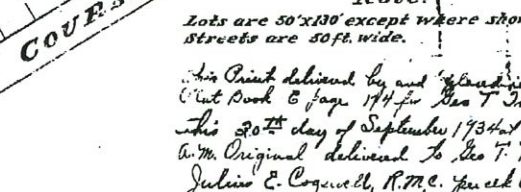 COURS
Note:
Lots are 50'x130' except where sho
Streets are 50 ft. wide.
this Print delivered by and
Plat Book E page 174 for Geo T.
this 20TH day of September 1934 at
A.M. Original delivered to Geo T.
Julius E. Cogswell, R.M.C. per